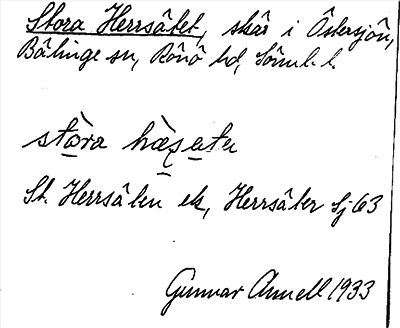 Stora Herrsätet, skär i Östersjön,
Bälinge sn, Rönö hd, Söml. l.
stòra hæ̀ṣatu
St. Herrsäten ek, Herrsäter Sj 63
Gunnar Annell 1933